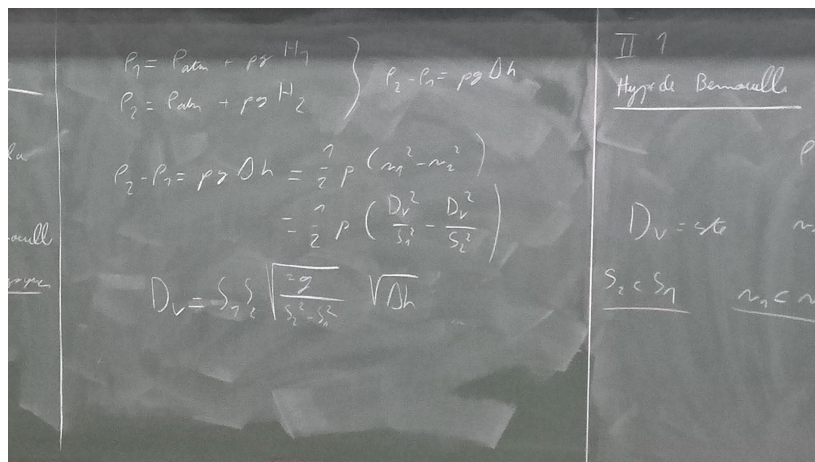 P₁ = Patm + ρg H₁
P₂ = Patm + ρg H₂
P₂ - P₁ = ρg Δh
P₂ - P₁ = ρg Δh = 1/2 ρ (v₁² - v₂²)
= 1/2 ρ (Dv²/S₁² - Dv²/S₂²)
Dv = S₁ S₂ √(2g/(S₂² - S₁²)) √Δh
II 1
Hyp de Bernoulli
Dv = cste
S₂ < S₁